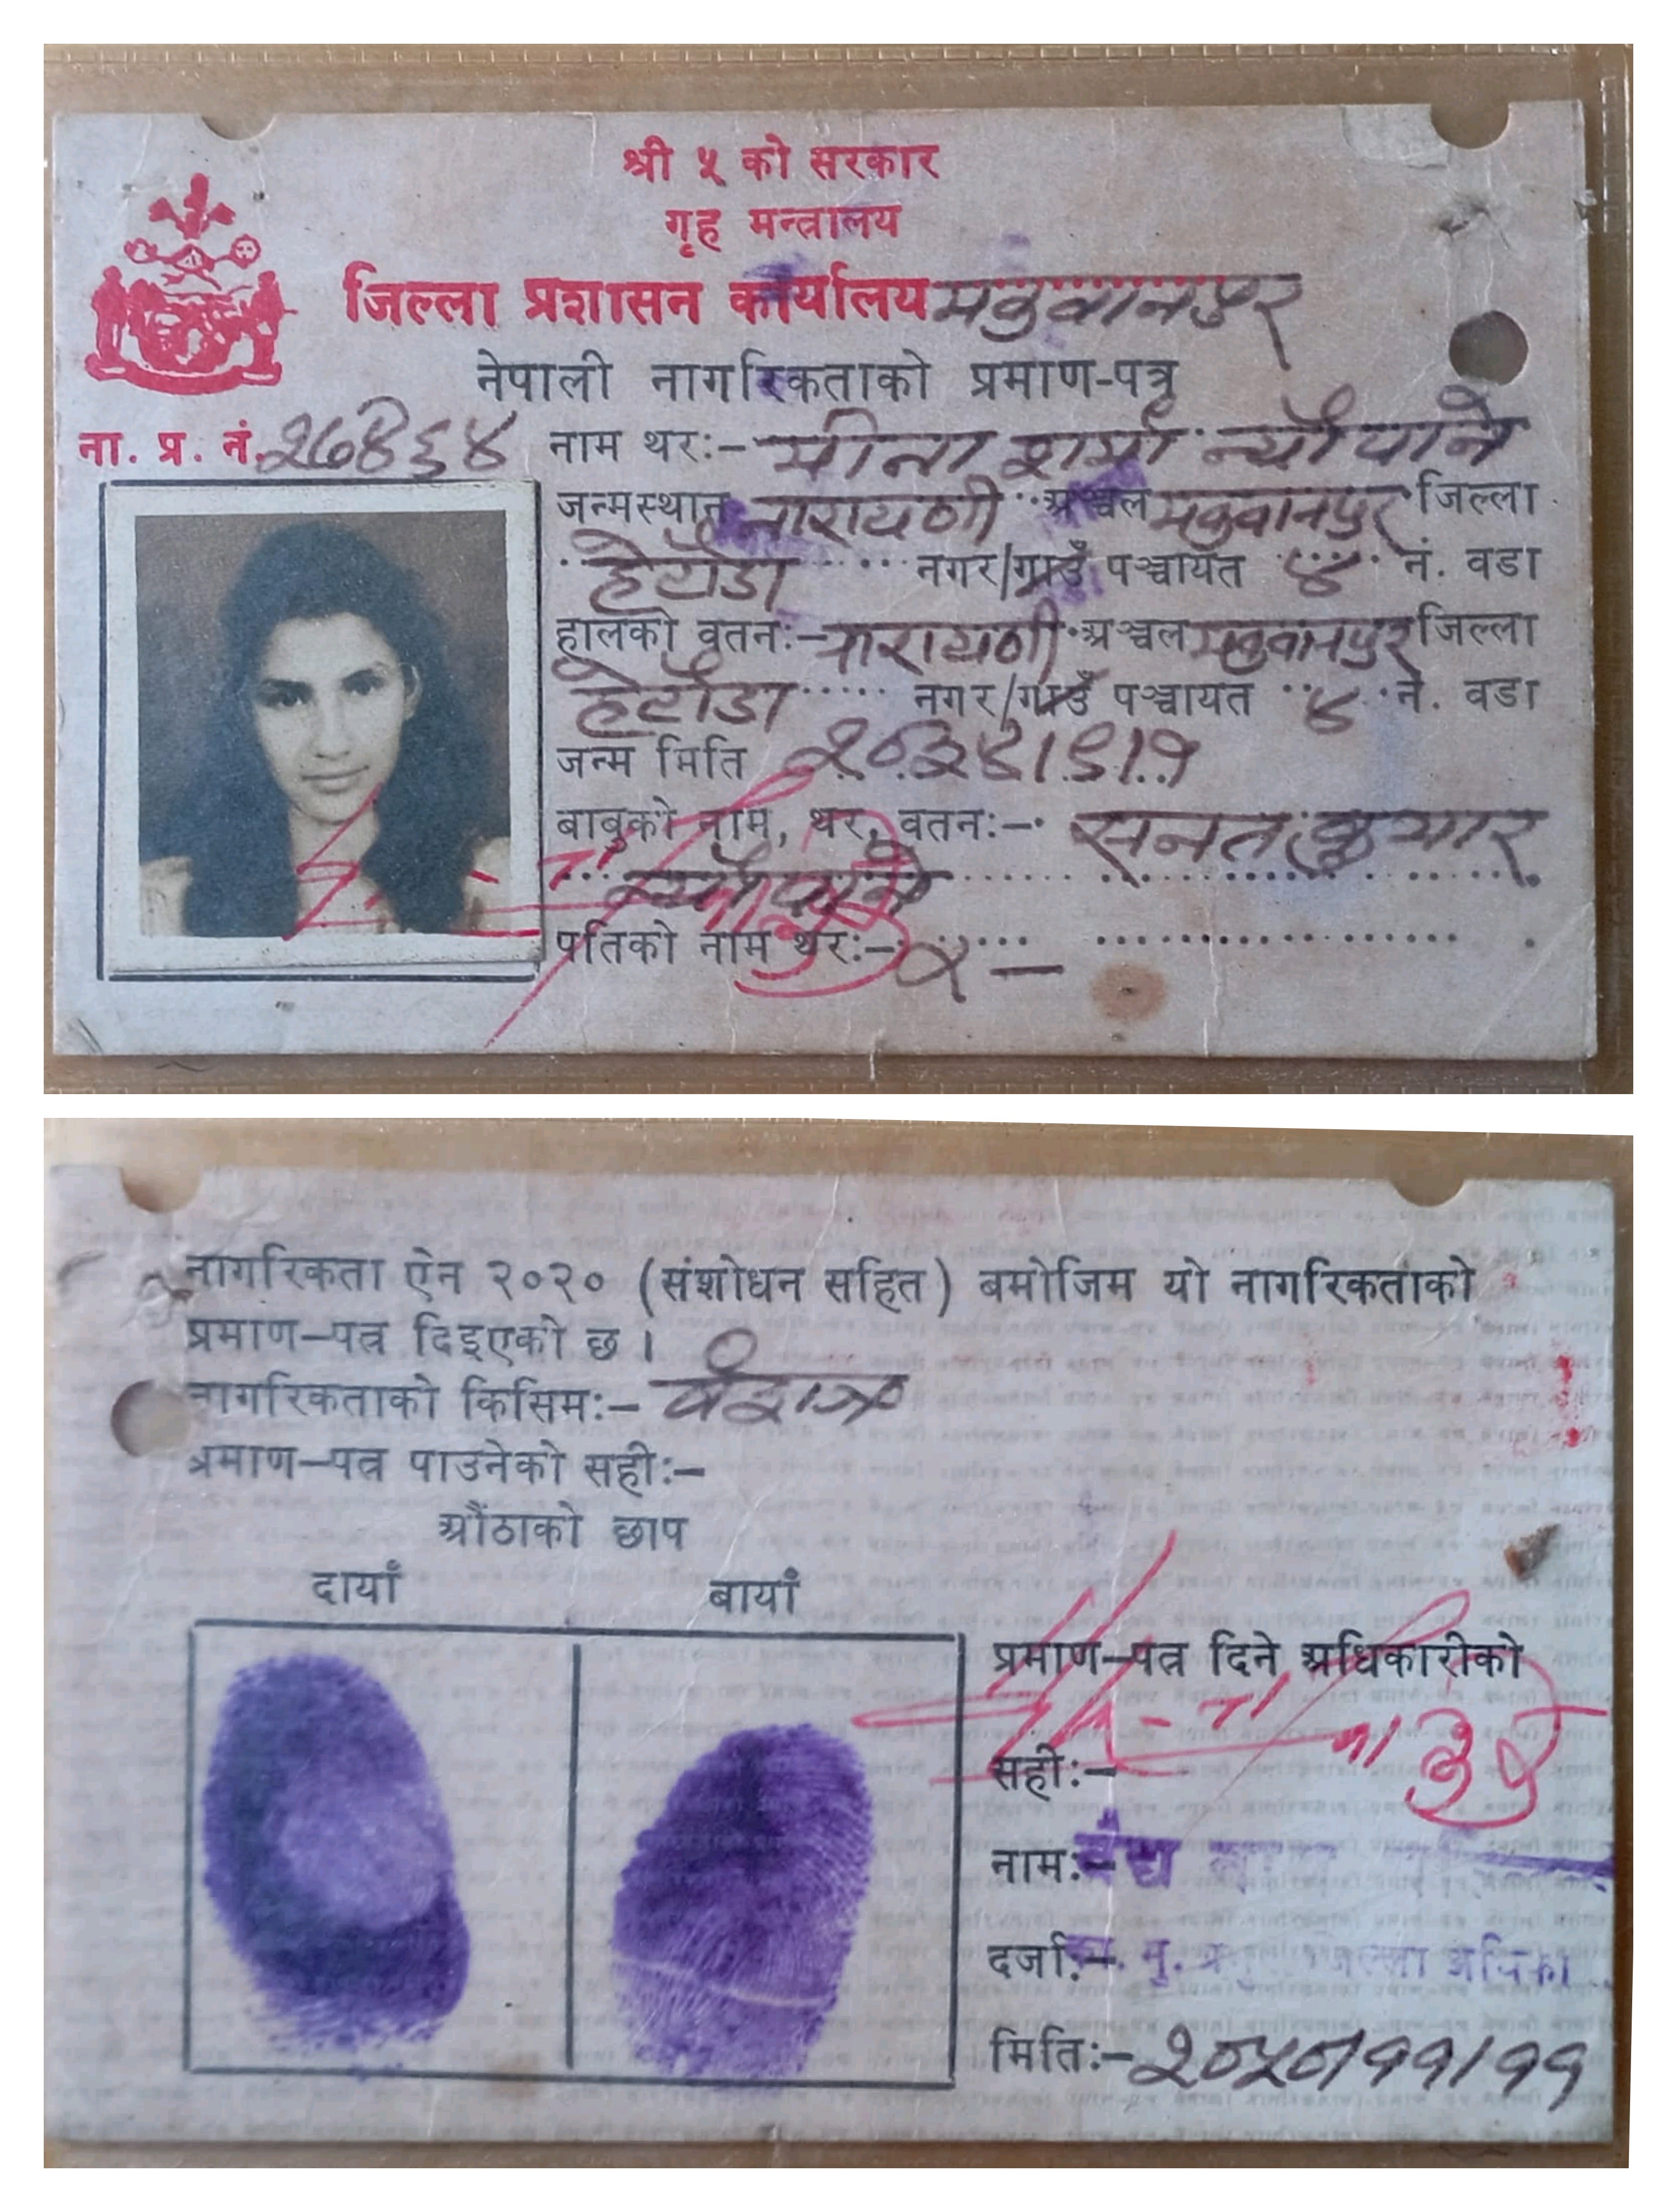 श्री ५ को सरकार
गृह मन्त्रालय
जिल्ला प्रशासन कार्यालय मकवानपुर
नेपाली नागरिकताको प्रमाण-पत्र
ना. प्र. नं.
नाम थरः- मीना शर्मा न्यौपाने
जन्मस्थान नारायणी अञ्चल मकवानपुर जिल्ला
हेटौडा नगर/गाउँ पञ्चायत ४ नं. वडा
हालको वतनः- नारायणी अञ्चल मकवानपुर जिल्ला
हेटौडा नगर/गाउँ पञ्चायत ४ नं. वडा
जन्म मिति
बाबुको नाम, थर, वतनः- सनत कुमार
न्यौपाने
पतिको नाम थरः- × –
नागरिकता ऐन २०२० (संशोधन सहित) बमोजिम यो नागरिकताको
प्रमाण-पत्र दिइएको छ ।
नागरिकताको किसिमः- वंशज
प्रमाण-पत्र पाउनेको सहीः-
औंठाको छाप
दायाँ बायाँ
प्रमाण-पत्र दिने अधिकारीको
सहीः-
नामः-
दर्जाः- का. मु. प्रमुख जिल्ला अधिका
मितिः- २०५०/११/११